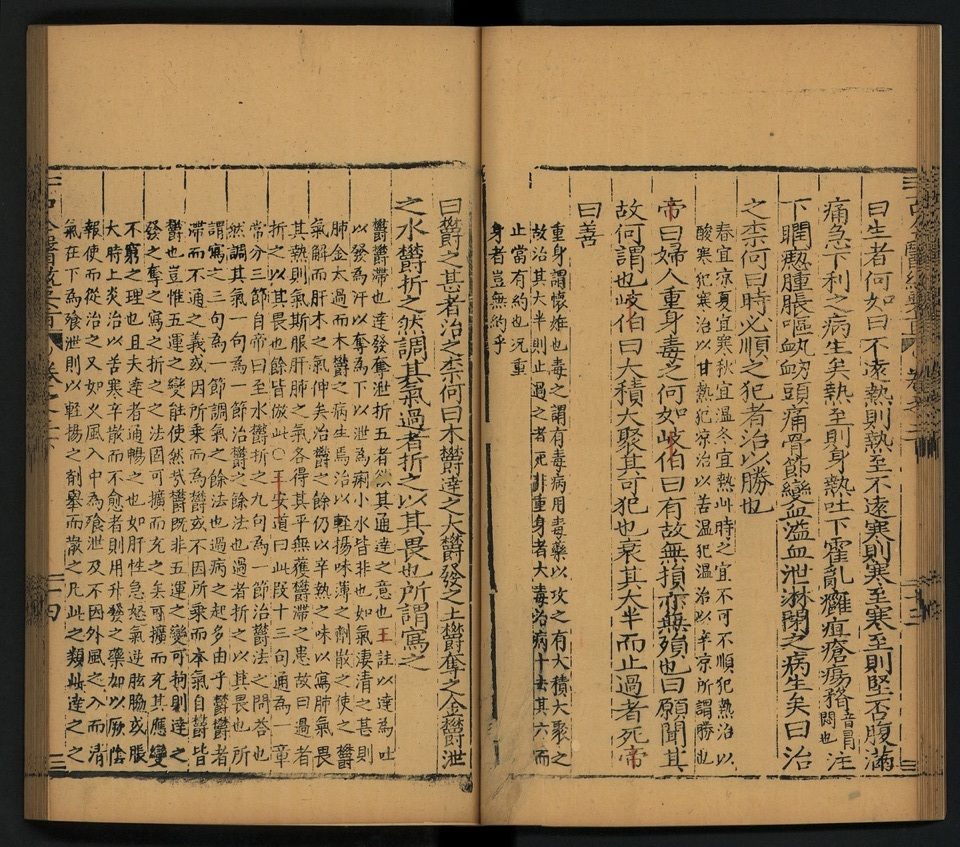 曰生者何如曰不遠熱則熱至不遠寒則寒至寒至則堅否腹滿
痛急下利之病生矣熱至則身熱吐下霍亂癰疽瘡瘍瞀音冒悶也注
下瞤瘛腫脹嘔鼽衄頭痛骨節變血溢血泄淋閟之病生矣曰治
之柰何曰時必順之犯者治以勝也
春宜凉夏宜寒秋宜温冬宜熱此時之宜不可不順犯熱治以
酸寒犯寒治以甘熱犯凉治以苦温犯温治以辛凉所謂勝也
帝曰婦人重身毒之何如岐伯曰有故無損亦無殞也曰願聞其
故何謂也岐伯曰大積大聚其可犯也衰其大半而止過者死帝
曰善
重身謂懷娠也毒之謂有毒病用毒藥以攻之有大積大聚之
故治其大半則止過之者死非重身者大毒治病十去其六而
止當有約也况重
身者豈無約乎
曰鬱之甚者治之柰何曰木鬱達之火鬱發之土鬱奪之金鬱泄
之水鬱折之然調其氣過者折之以其畏也所謂寫之
鬱鬱滯也達發奪泄折五者欲其通達之意也王註以達為吐
以發為汗以奪為下以泄為痢小水皆非也如氣淒清之甚則
肺金太過而木鬱之病生焉治以軽揚味薄之劑散之使之鬱
氣解而肝木之氣伸矣治鬱之餘仍以辛熱之味以寫肺氣畏
其熱則氣斯服肝肺之氣各得其平無獲鬱滯之患故曰過者
折之以其畏也餘皆倣此〇王安道曰此段十三句通為一章
常分三節自帝曰至水鬱折之九句為一節治鬱法之問荅也
然調其氣一句為一節治鬱之餘法也過者折之以其畏也所
謂寫之三句為一節調氣之餘法也過病之起多由乎鬱鬱者
滯而不通之義或因所乘而為鬱或不因所乘而本氣自鬱皆
鬱也豈惟五運之變能使然哉鬱既非五運之變可拘則達之
發之奪之寫之折之之法固可擴而充之矣可擴而充其應變
不窮之理也且夫達者通暢之也如肝性急怒氣逆胠脇或脹
火時上炎治以苦寒辛散而不愈者則用升發之藥加以厥陰
報使而從治之又如久風入中為飱泄及不因外風之入而清
氣在下為飱泄則以軽揚之劑舉而散之凡此之類此達之之